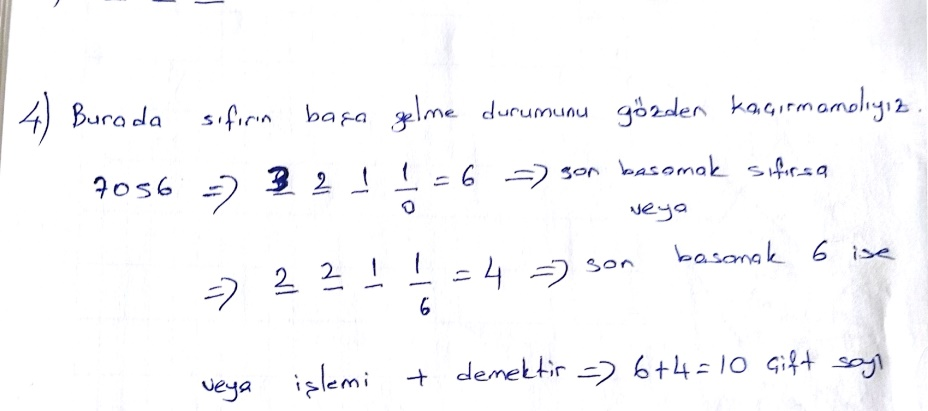 4) Burada sıfırın başa gelme durumunu gözden kaçırmamalıyız.
7056 => 3 2 1 1 = 6 => son basamak sıfırsa
0 veya
=> 2 2 1 1 = 4 => son basamak 6 ise
6
veya işlemi + demektir => 6+4=10 çift sayı